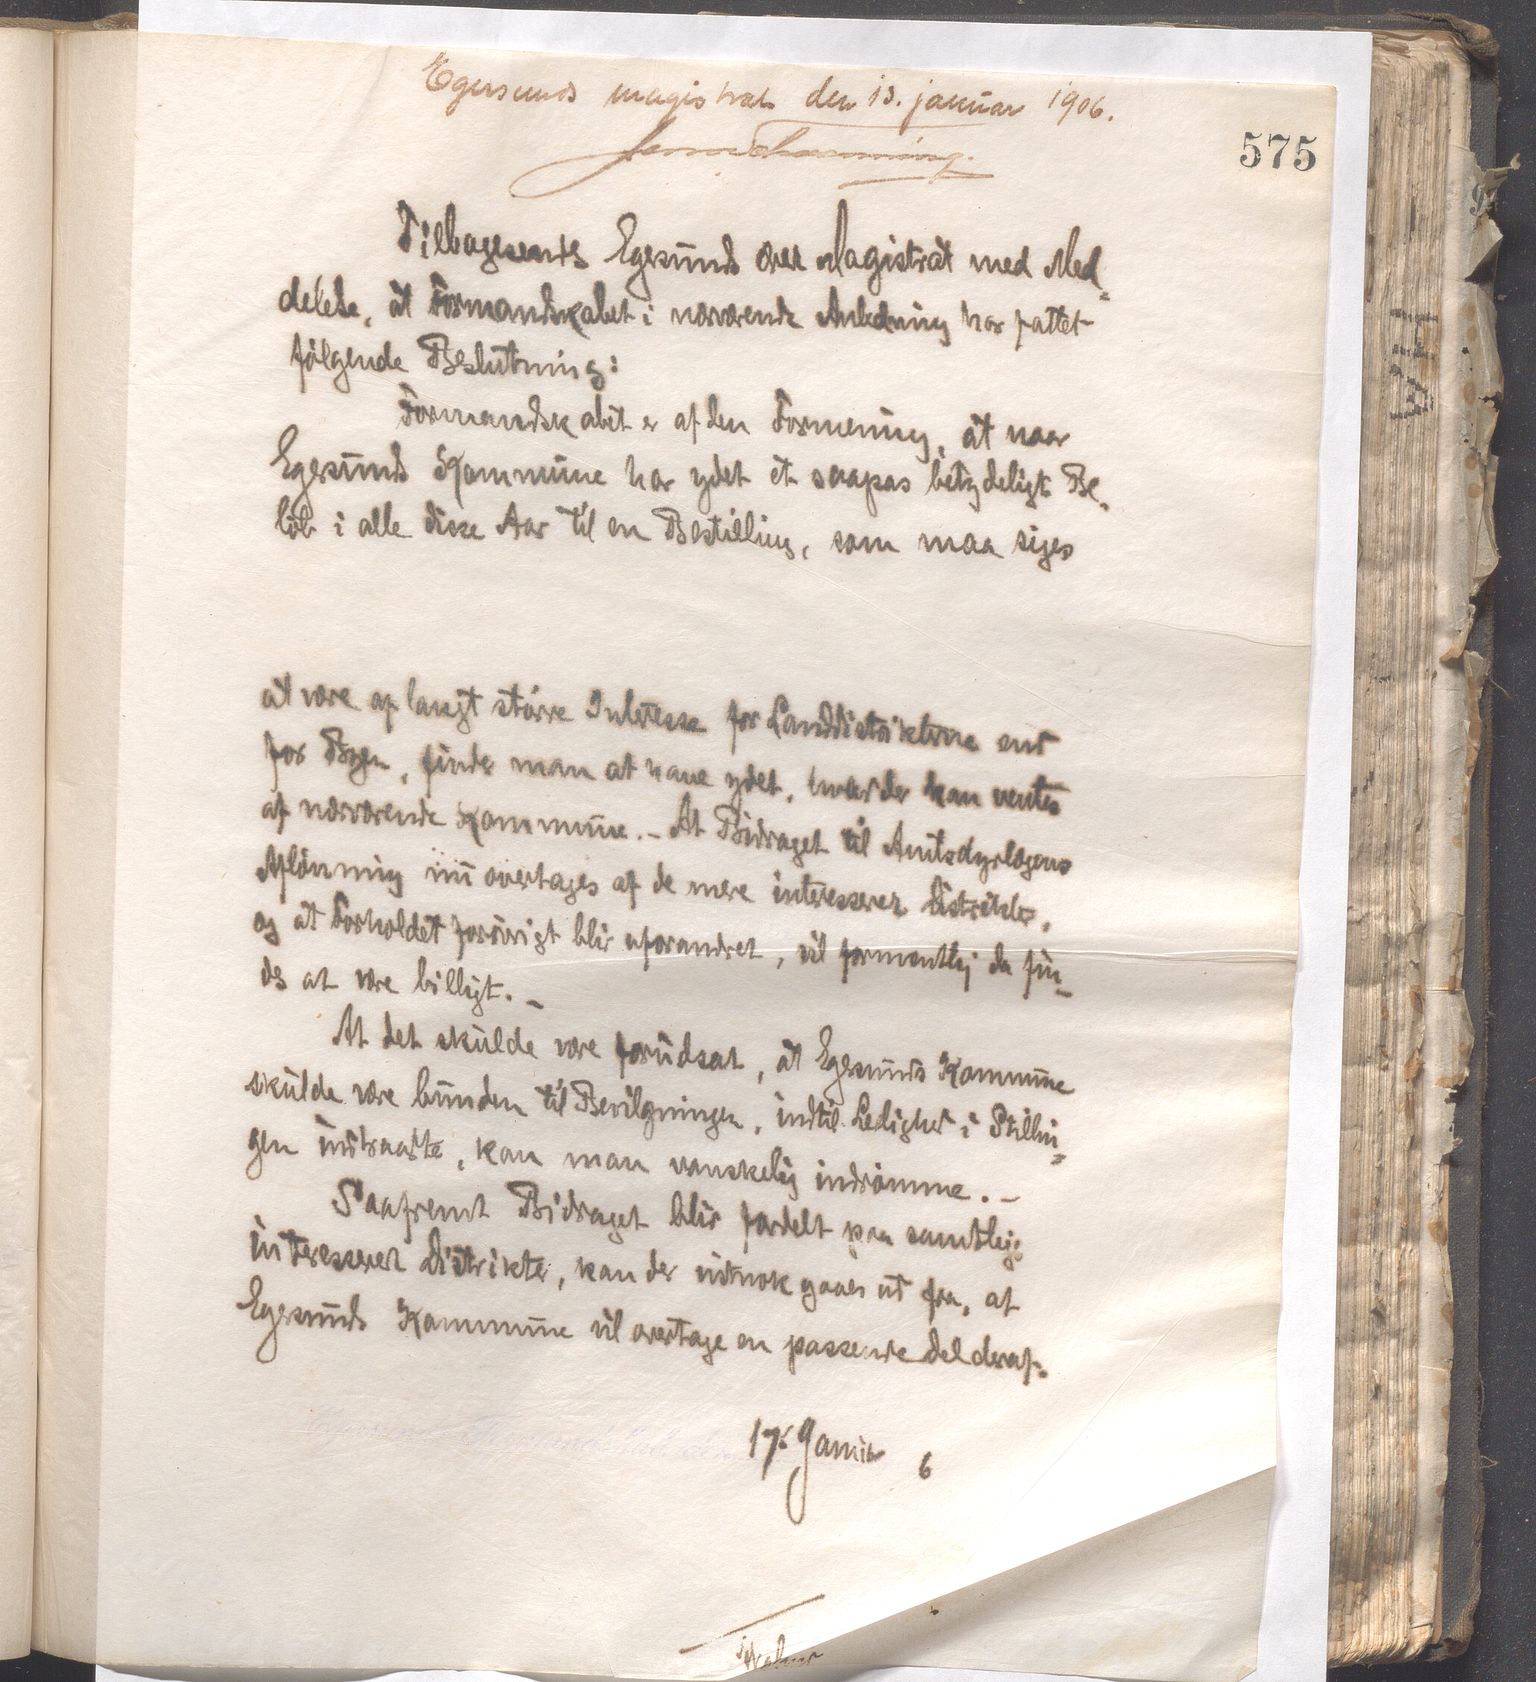 Egersunds magistrat den 13. januar 1906.
575
Tilbagesendes Egersund ærer Magistrat med Med-
delelse, at Formandskabet i nærværende Anledning har fattet
følgende Beslutning:
Formandskabet er af den Formening, at naar
Egersunds Kommune har ydet et saapas betydeligt Be-
löb i alle disse Aar til en Bestilling, som maa siges
at være af langt större Interesse for Landdistrikterne end
for Byen, finder man at have ydet, hvad der kan ventes
af nærværende Kommune. - At Bidraget til Amtsdyrlægens
Aflönning nu overtages af de mere interesserer Distrikter,
og at Forholdet forövrigt blir uforandret, vil formentlig da fin-
des at være billigt. -
At det skulde være forudsat, at Egersunds Kommune
skulde være bunden til Bevilgningen, indtil Ledighed i Stillin-
gen indtraadte, kan man vanskelig indrömme. -
Saafremt Bidraget blir fordelt paa samtlige
interesserer Distrikter, kan der nitnok gaaes ud fra, at
Egersunds Kommune vil overtage en passende Del deraf.
17. Januar 6